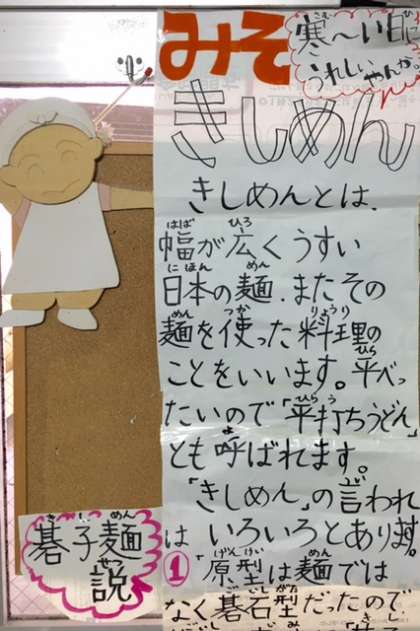 みそ
寒〜い日に
うれしいやんか。
きしめん
きしめんとは、
幅が広くうすい
日本の麺.またその
麺を使った料理の
ことをいいます。平べっ
たいので「平打ちうどん」
とも呼ばれます。
「きしめん」の言われ
は いろいろとあり〼。
碁子麺
説
①「原型は麺では
なく碁石型だったので、